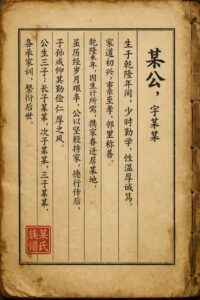 某公，字某某
生于乾隆年间，少时勤学，性温厚诚笃。
家道初兴，事亲至孝，邻里称善。
乾隆末年，因生计所需，携家眷迁居某地，
虽历经岁月艰辛，公以坚毅持家，德行传后，
子孙咸仰其勤俭仁厚之风。
公生三子：长子某某，次子某某，三子某某，
各承家训，繁衍后世。
某氏族谱